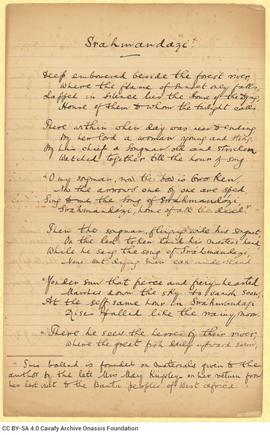 Srahmandazi*
Deep embowered beside the forest river,
Where the flame of sunset only falls,
Lapped in silence lies the House of the Dying,
House of them to whom the twilight calls.
There within when day was near to ending,
By her lord a woman young and strong,
By his chief a songman old and stricken
Watched together till the hour of song.
"O my songman, now the bow is broken,
Now the arrows one by one are sped,
Sing to me the Song of Srahmandazi,
Srahmandazi, home of all the dead."
Then the songman, flinging wide his songnet,
On the last token laid his master's hand,
While he sang the song of Srahmandazi,
None but dying men can understand.
"Yonder sun that fierce and fiery-hearted
Marches down the sky to vanish soon,
At the self same hour in Srahmandazi
Rises pallid like the rainy moon.
"There he sees the heroes by their river,
Where the great fish daily upward swim;
* This ballad is founded on materials given to the
author by the late Miss Mary Kingsley on her return from
her last visit to the Bantu peoples of West Africa.
CC BY-SA 4.0 Cavafy Archive Onassis Foundation